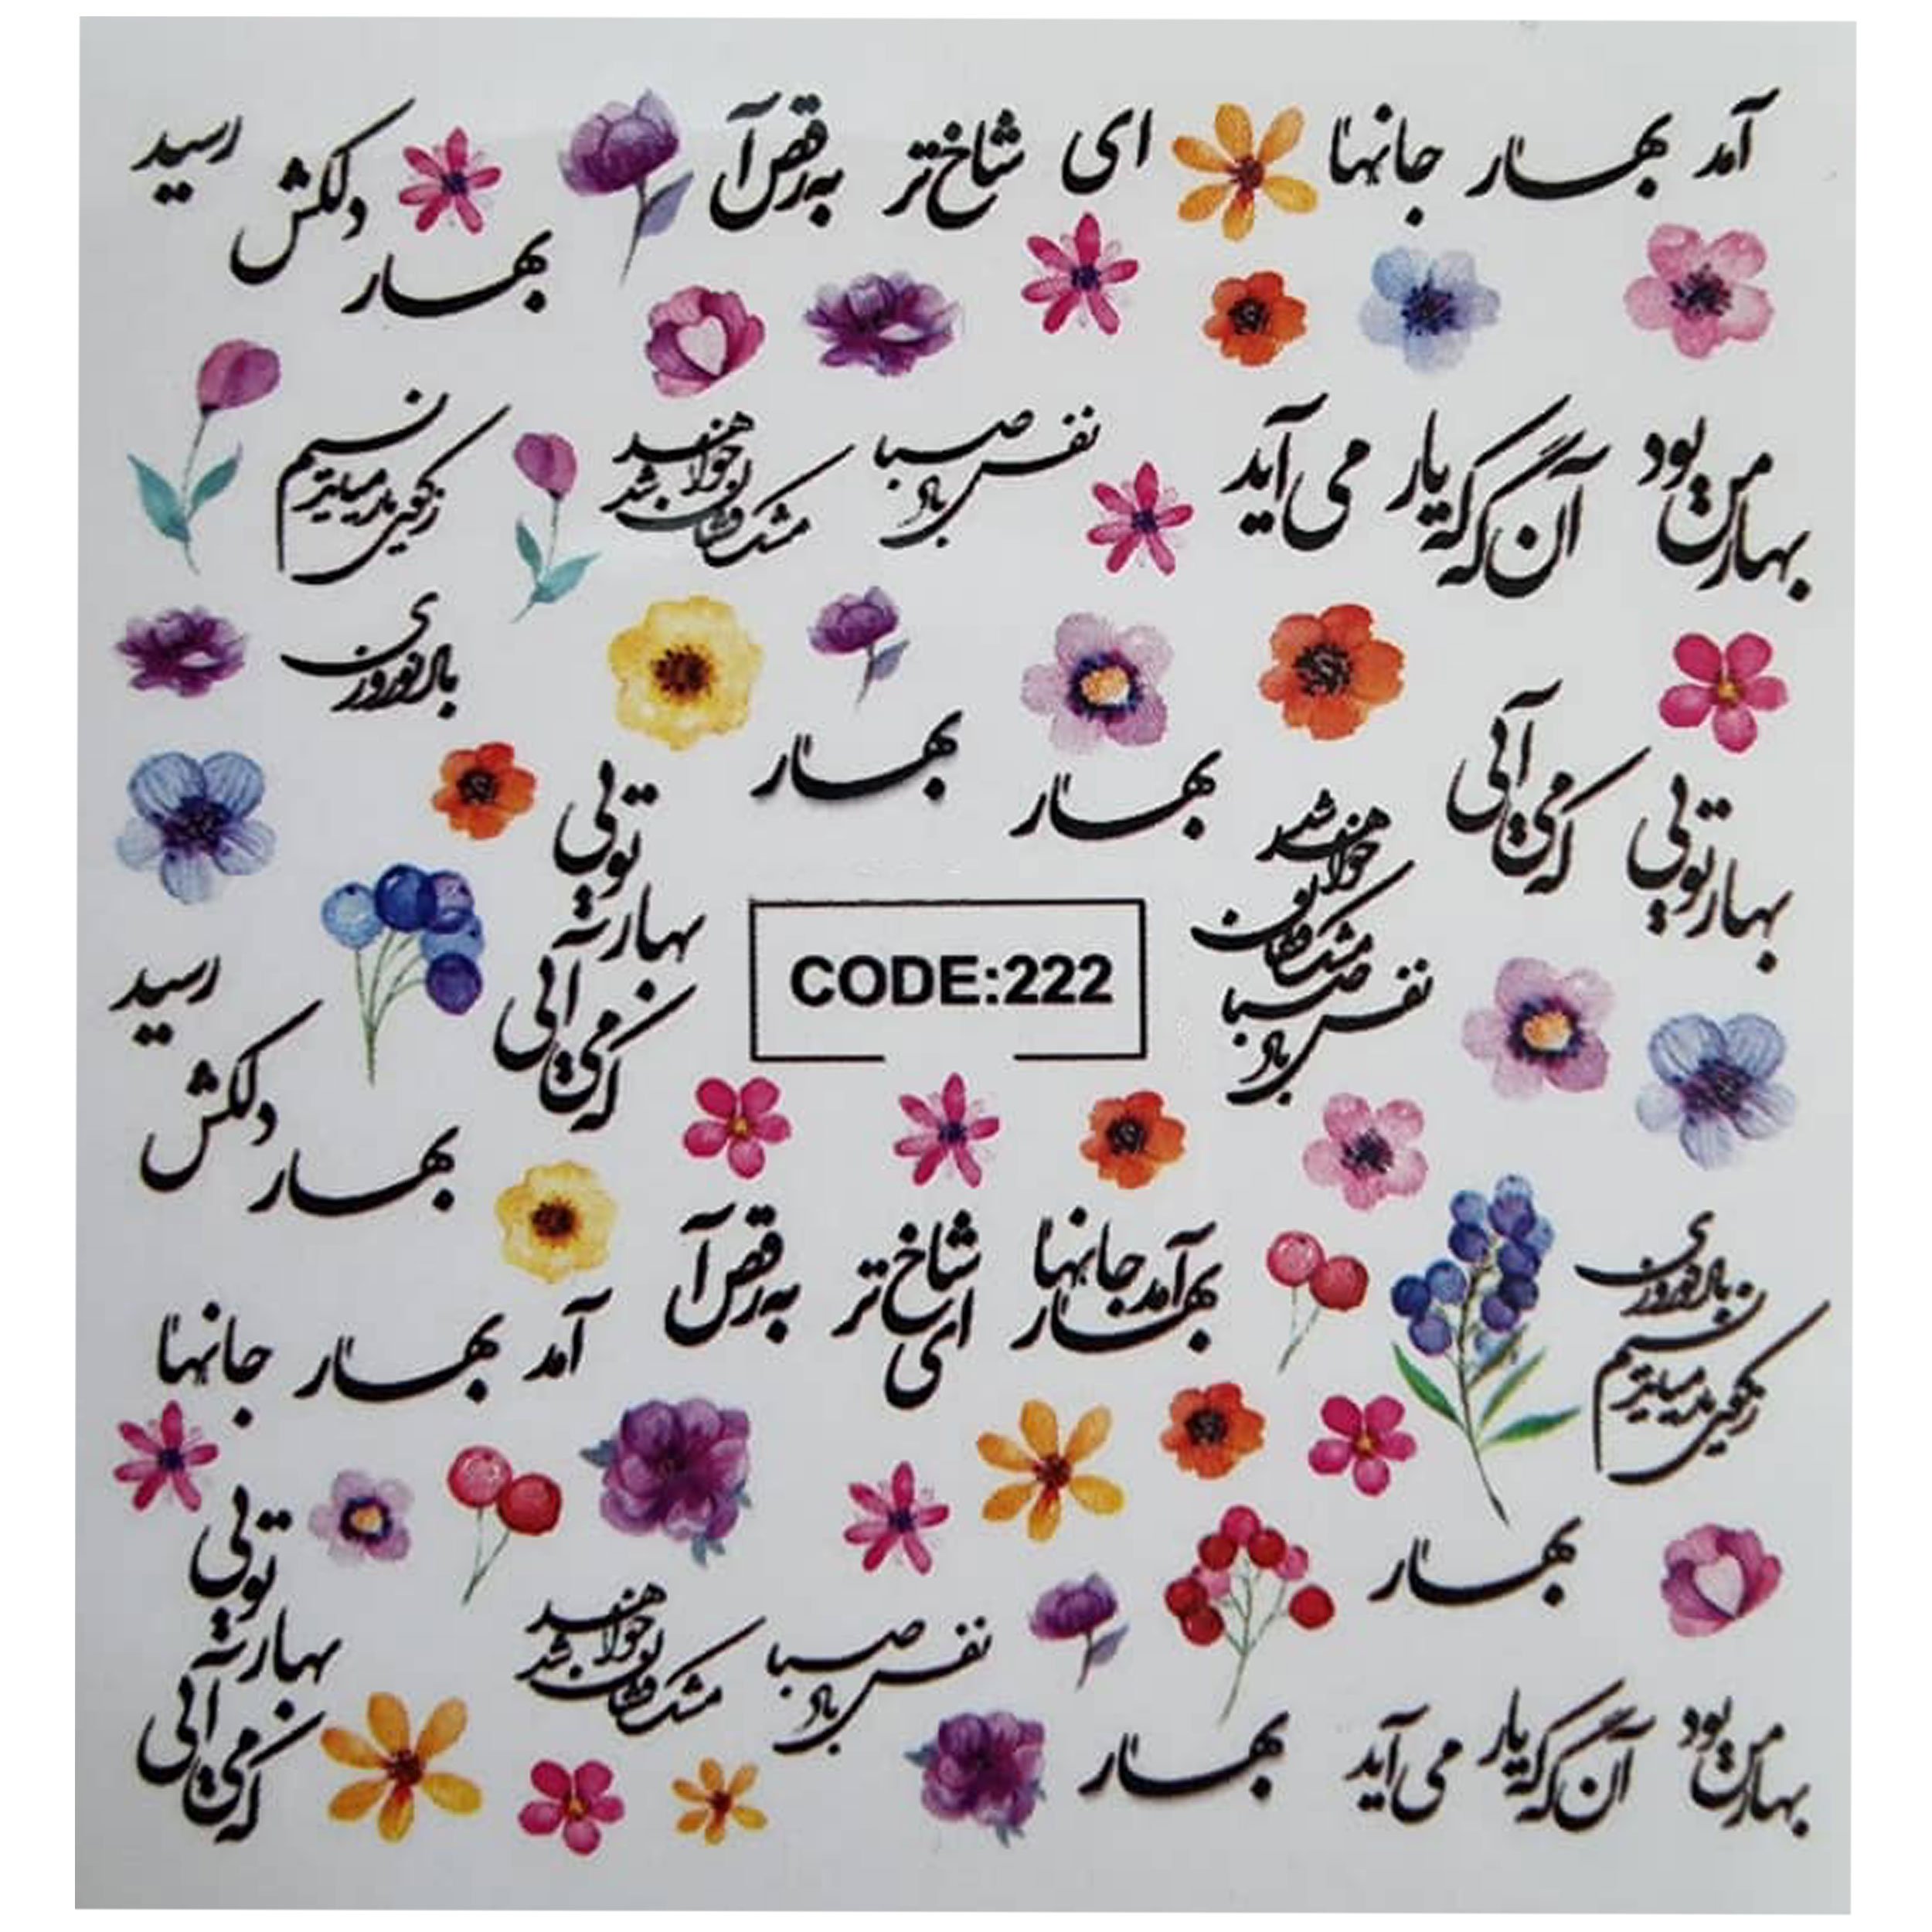 آمد بهار جانها
ای شاخ تر به رقص آ
بهار دلکش رسید
بهار من بود
آن گه که یار می آید
نفس باد صبا
مشک فشان خواهد شد
زکوی یار میاید نسیم
باد نوروزی
بهار تویی
که می آئی
بهار
بهار
نفس باد صبا
مشک فشان خواهد شد
بهار تویی
که می آئی
CODE:222
بهار دلکش رسید
آمد بهار جانها
ای شاخ تر
به رقص آ
باد نوروزی
زکوی یار میاید نسیم
آمد بهار جانها
بهار
بهار تویی
که می آئی
نفس باد صبا
مشک فشان خواهد شد
بهار من بود
آن گه که یار می آید
بهار